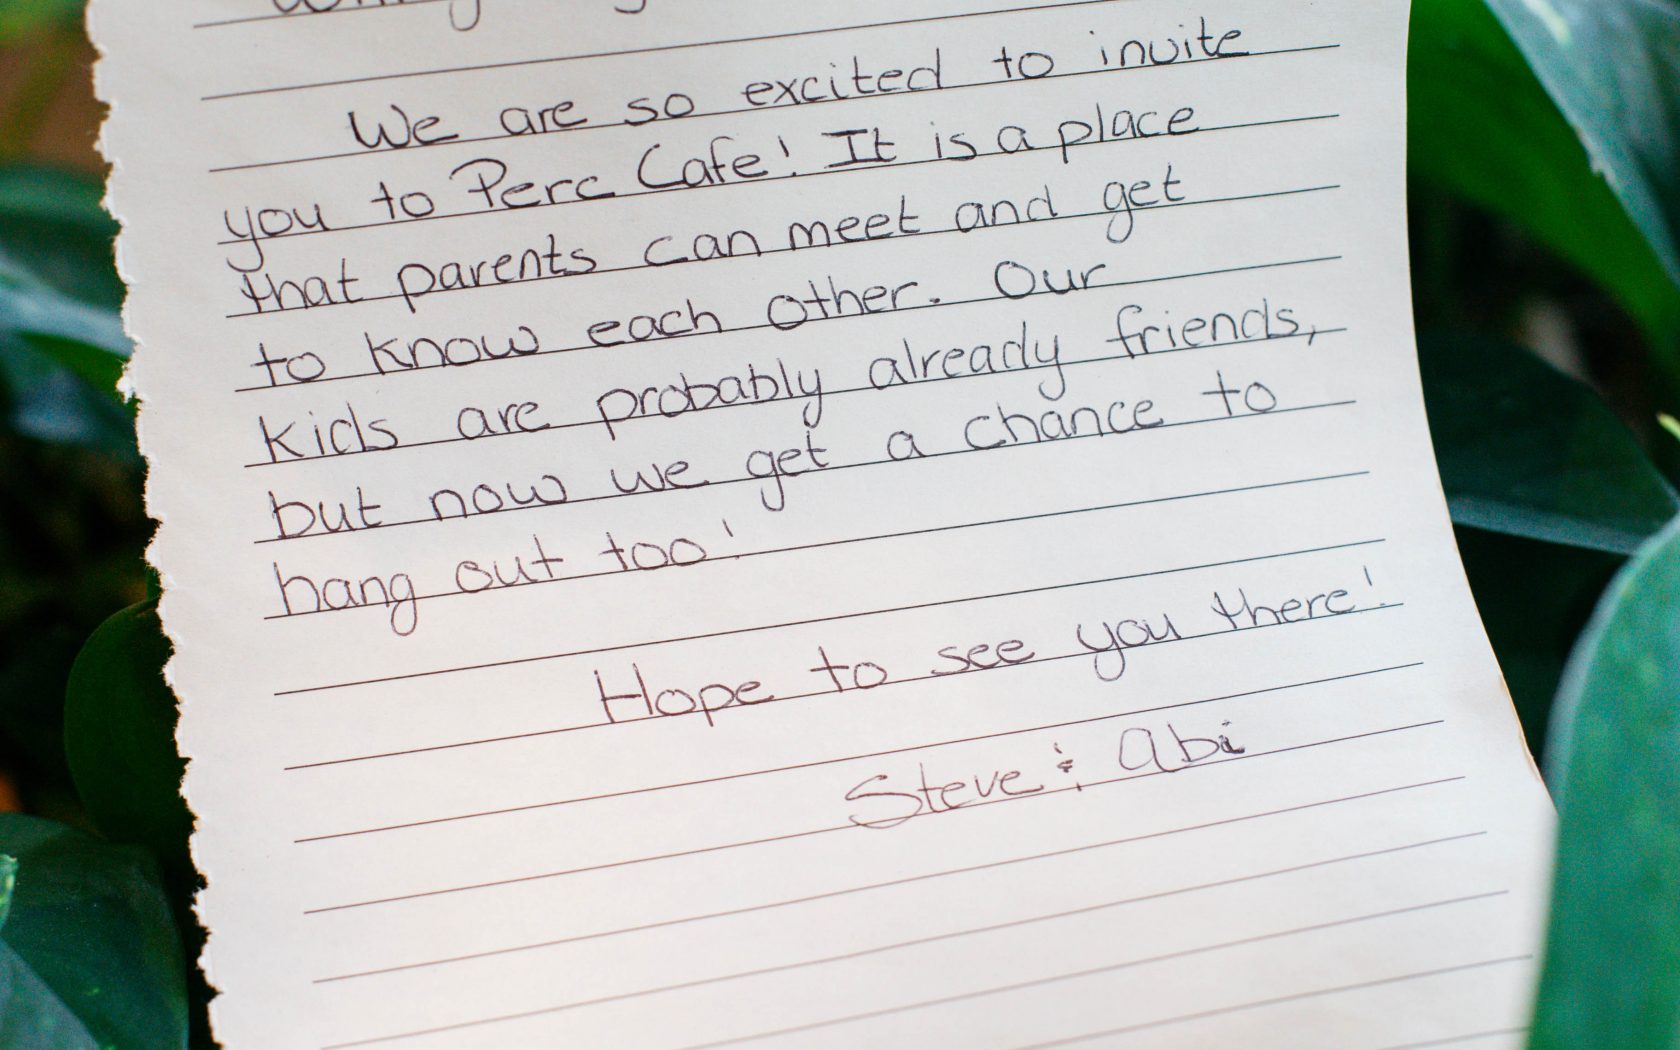 We are so excited to invite
you to Perc Cafe! It is a place
that parents can meet and get
to know each other. Our
kids are probably already friends,
but now we get a chance to
hang out too!
Hope to see you there!
Steve & Abi